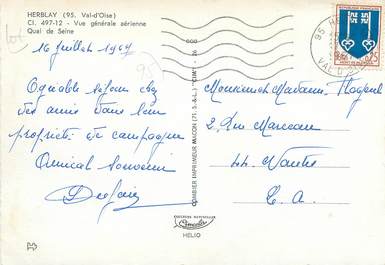 HERBLAY (95. Val-d'Oise)
Cl. 497-12 - Vue générale aérienne
Quai de Seine
16 juillet 1967
Agréable séjour chez
des amis dans leur
propriété de campagne
Amical souvenir
COMBIER IMPRIMEUR MACON (71. S.-&-L.) "CIM"
COULEURS NATURELLES
HELIO
REPUBLIQUE FRANÇAISE
0,25
95 HE
VAL D'OISE
Monsieur et Madame
2, Rue Marceau
44 Nantes